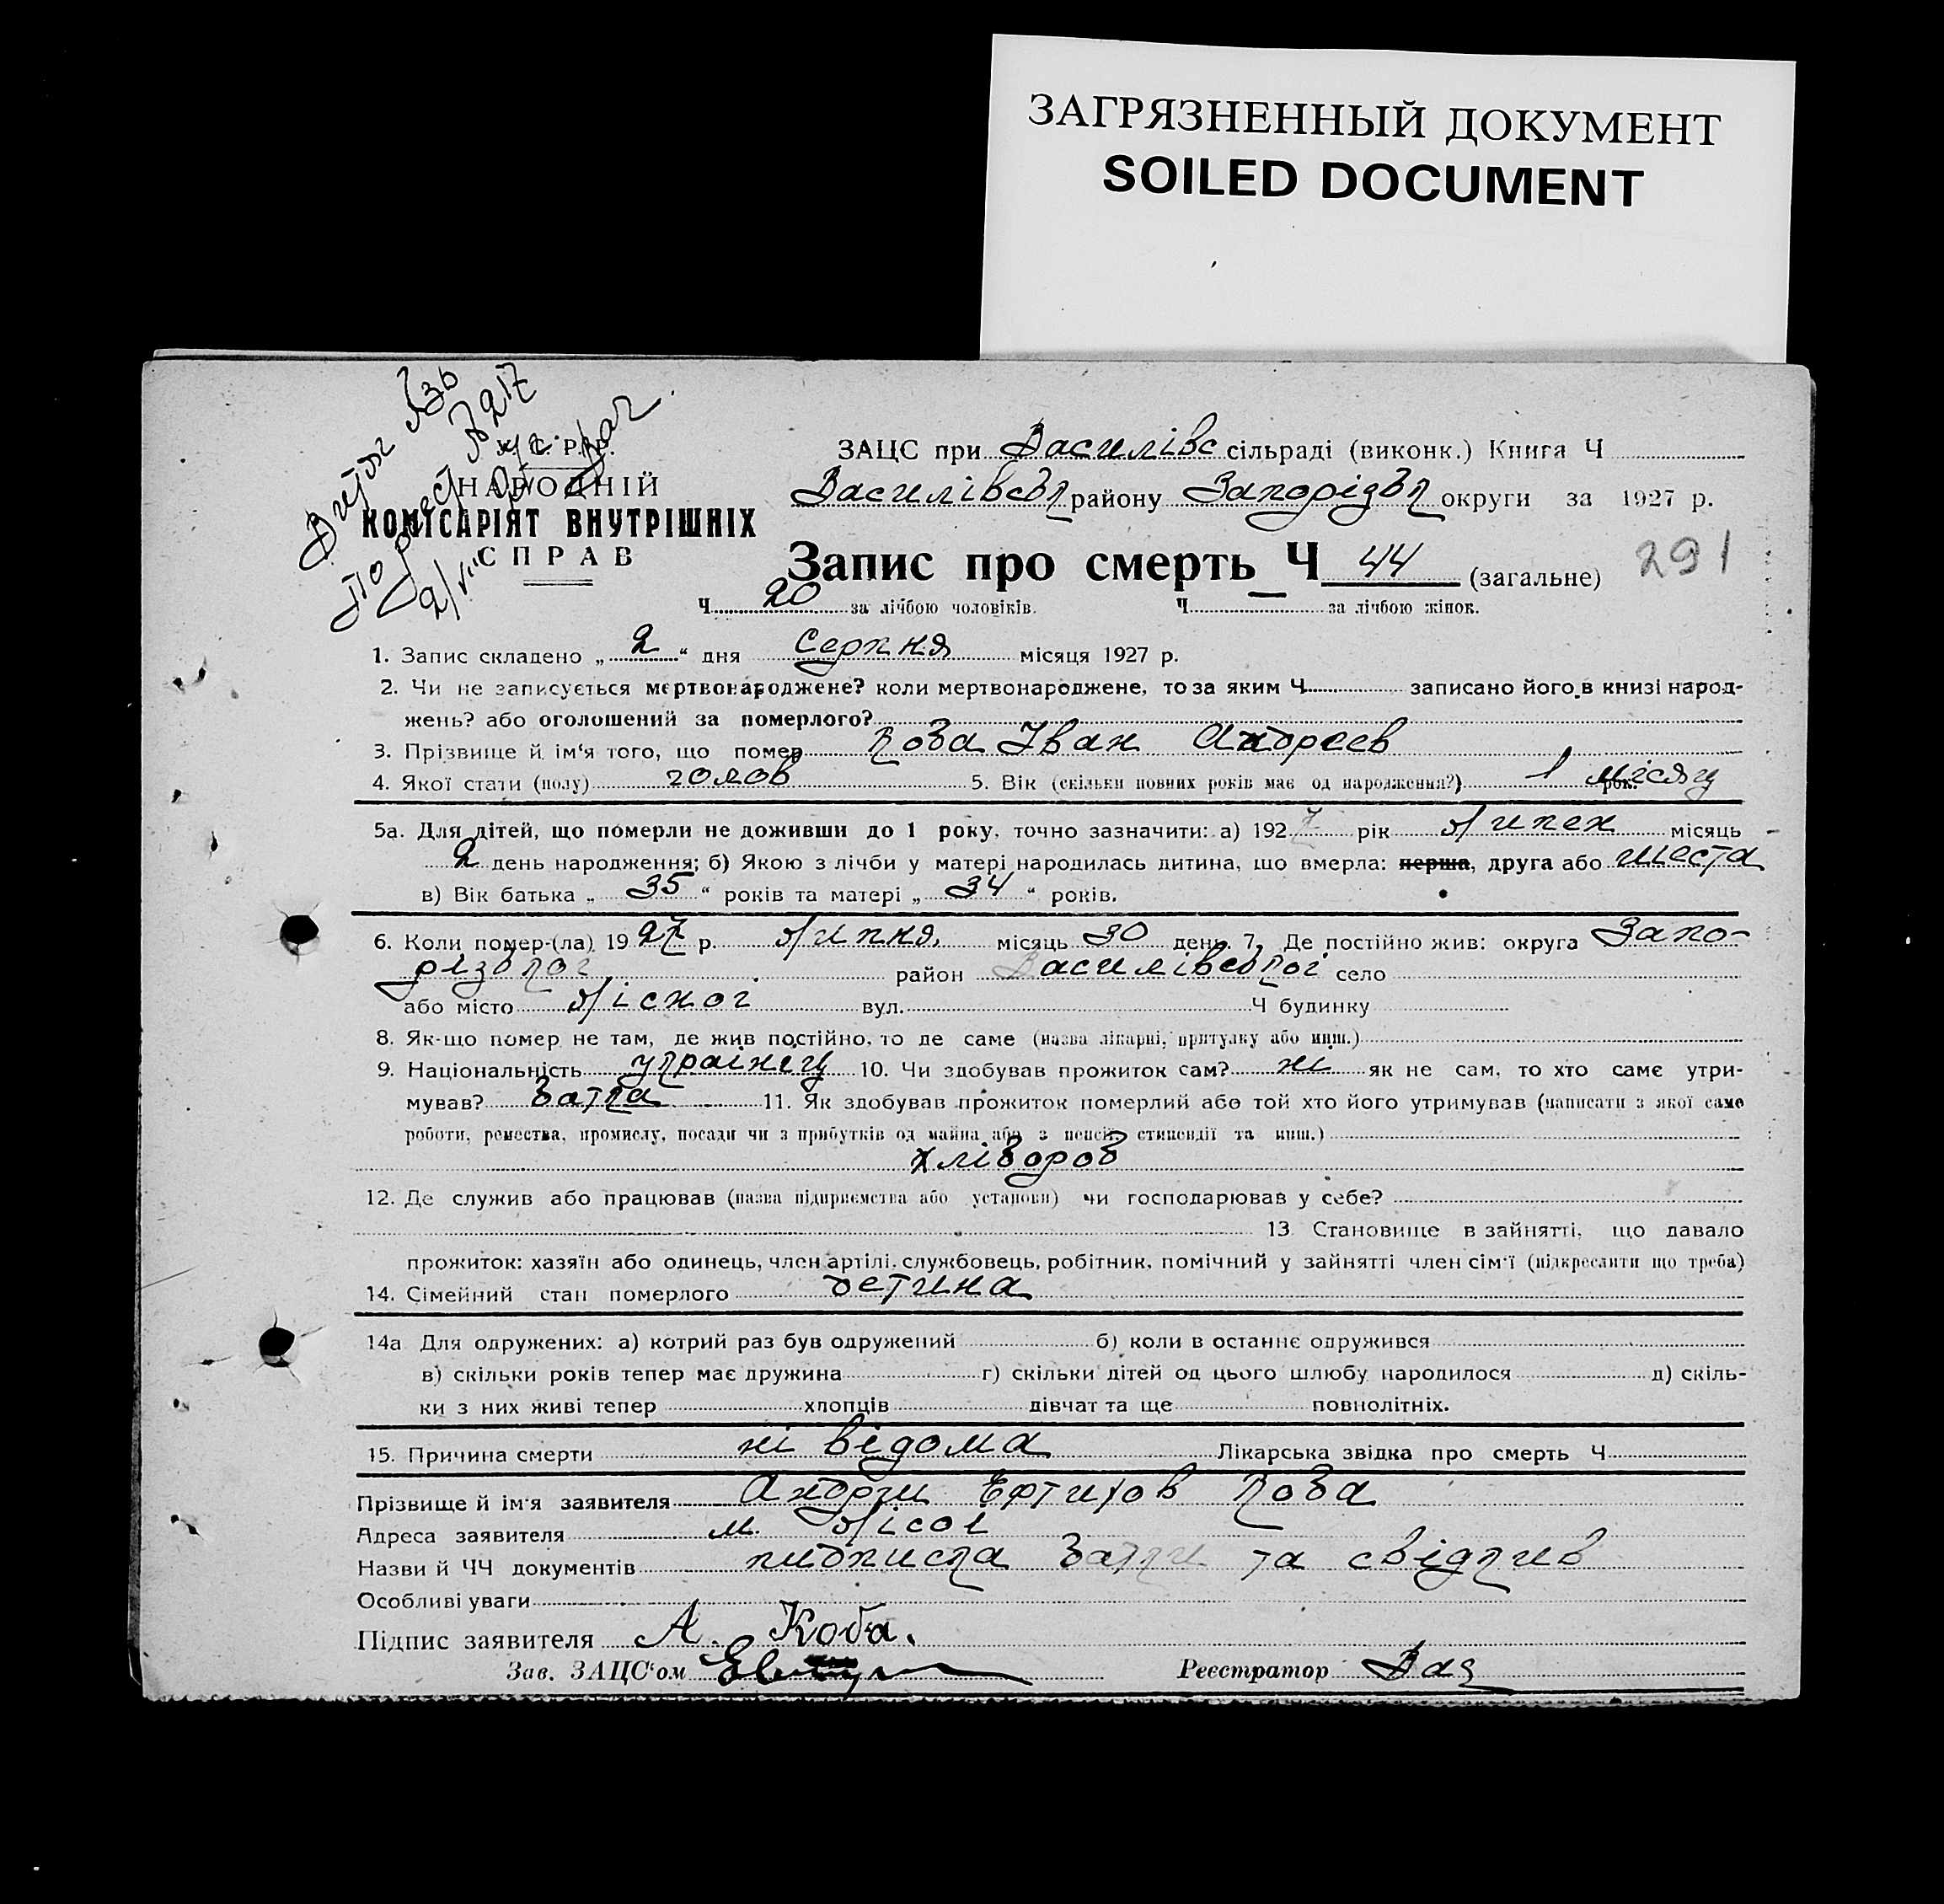 ЗАГРЯЗНЕННЫЙ ДОКУМЕНТ
SOILED DOCUMENT
У. С. Р. Р.
НАРОДНІЙ
КОМІСАРІЯТ ВНУТРІШНІХ
СПРАВ
ЗАЦС при Василівс сільраді (виконк.) Книга Ч
Василівськ району Запорізьк округи за 1927 р.
Запис про смерть Ч 44 (загальне) 291
Ч 20 за лічбою чоловіків. Ч за лічбою жінок.
1. Запис складено „ 2 “ дня Серпня місяця 1927 р.
2. Чи не записується мертвонароджене? коли мертвонароджене, то за яким Ч записано його в книзі народ-
жень? або оголошений за померлого?
3. Прізвище й ім'я того, що помер Коба Іван Андреев
4. Якої стати (полу) голов 5. Вік (скільки повних років має од народження?) 1 місяц рок.
5а. Для дітей, що померли не доживши до 1 року, точно зазначити: а) 1927 рік Липен місяць
2 день народження; б) Якою з лічби у матері народилась дитина, що вмерла: перша, друга або шеста
в) Вік батька „ 35 “ років та матері „ 34 “ років.
6. Коли помер-(ла) 1927 р. Липня місяць 30 день. 7. Де постійно жив: округа Запо-
різької район Василівської село
або місто Лісної вул. Ч будинку
8. Як-що помер не там, де жив постійно, то де саме (назва лікарні, притулку або инш.)
9. Національність українец 10. Чи здобував прожиток сам? ні як не сам, то хто саме утри-
мував? Батка 11. Як здобував прожиток померлий або той хто його утримував (написати з якої саме
роботи, ремества, промислу, посади чи з прибутків од майна або з пенсії, стипендії та инш.)
хлібороб
12. Де служив або працював (назва підприємства або установи) чи господарював у себе?
13 Становище в зайнятті, що давало
прожиток: хазяїн або одинець, член артілі, службовець, робітник, помічний у зайнятті член сім'ї (підкреслити що треба)
14. Сімейний стан померлого детина
14а Для одружених: а) котрий раз був одружений б) коли в останнє одружився
в) скільки років тепер має дружина г) скільки дітей од цього шлюбу народилося д) скіль-
ки з них живі тепер хлопців дівчат та ще повнолітніх.
15. Причина смерти ні відома Лікарська звідка про смерть Ч
Прізвище й ім'я заявителя Андрзи Ефтихов Коба
Адреса заявителя м.
Назви й ЧЧ документів пидписка Батки та свідків
Особливі уваги
Підпис заявителя А. Коба.
Зав. ЗАЦС'ом Реєстратор